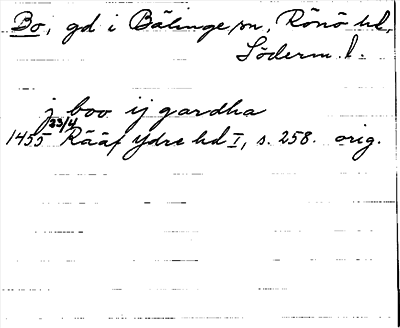 Bo, gd i Bälinge sn, Rönö hd,
Söderm. l.
j boo ij gardha
1455 23/4 Rääf Ydre hd I, s. 258. orig.